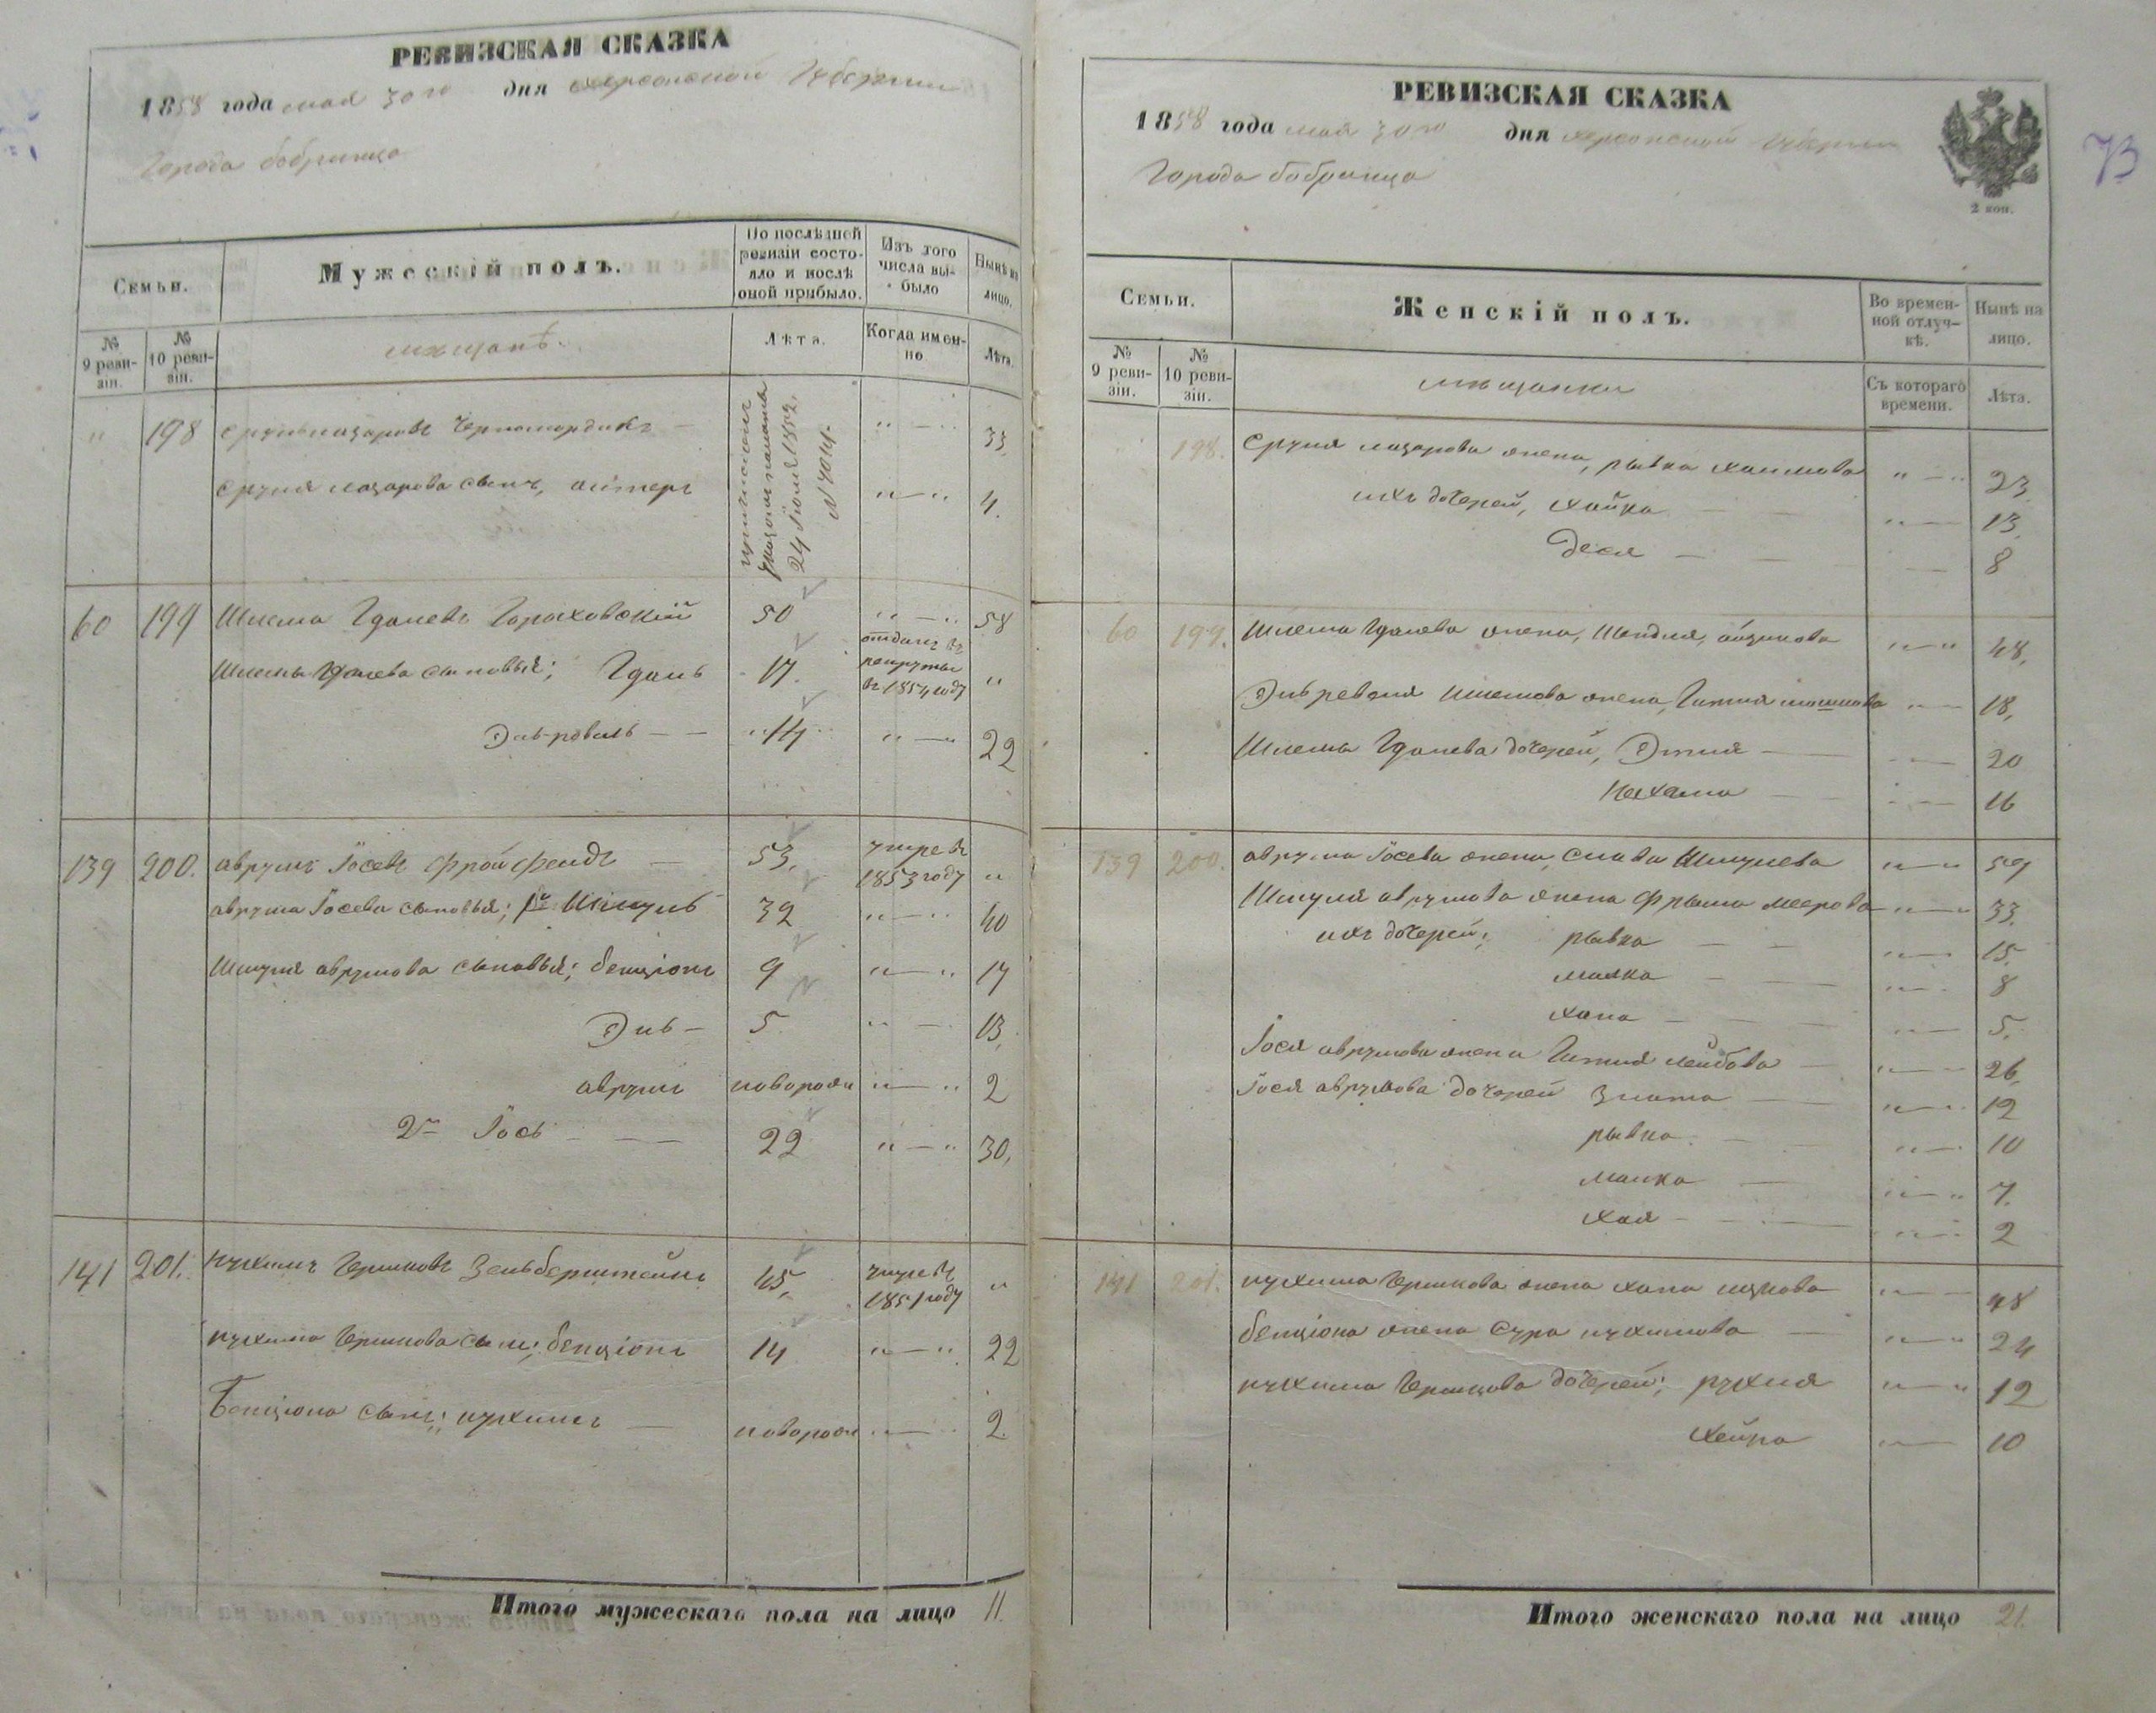 РЕВИЗСКАЯ СКАЗКА
1858 года мая 30го дня Херсонской Губернии
Города Бобринца
Семьи.
Мужескій полъ.
По послѣдней ревизіи состояло и послѣ оной прибыло.
Изъ того числа выбыло
Нынѣ на лицо.
№ 9 ревизіи.
№ 10 ревизіи.
мѣщанѣ.
Лѣта.
Когда именно
Лѣта.
" 198 Сруль Лазаровъ Черномордикъ — " — " 33
Сруля Лазарова сынъ, " — " 4.
24 Іюля 1852,
60 199 Шлема Гдалевъ Гораховскій 50 " — " 58
Шлемы Гдалева сыновья; Гдаль 17. отданъ въ рекруты въ 1854 году "
Эль-ревель — — 14 " — " 22
139 200. Аврумъ Іосевъ Фройфелдъ — 53, умре въ 1853 году "
Аврума Іосева сыновья; 1й Шмуль 32 " — " 40
Шмуля Аврумова сыновья; Бенціонъ 9 " — " 17
Эль — 5 " — 13,
Аврумъ новорожд " — " 2
2й Іось — — 22 " — " 30,
141 201. Нухимъ Гершковъ Зельберштейнъ 45, умре въ 1851 году "
Нухима Гершкова сынъ; Бенціонъ 14 " — " 22
Бенціона сынъ; Нухимъ — новорож " — " 2.
Итого мужескаго пола на лицо 11.
РЕВИЗСКАЯ СКАЗКА
1858 года мая 30го дня Херсонской Губернии
Города Бобринца
2 коп.
73
Семьи.
Женскій полъ.
Во временной отлучкѣ.
Нынѣ на лицо.
№ 9 ревизіи.
№ 10 ревизіи.
мѣщанки
Съ котораго времени.
Лѣта.
198. Сруля Лазарова жена, Рывка Хаимова " — " 23
ихъ дочерей, Хайка — — " — 13,
Деся — — — 8
60 199. Шлема Гдалева жена, Шендля, Айзикова " — " 48,
Эльревеля Шлемова жена, Гитля Мошкова " — 18,
Шлемы Гдалева дочерей, Этля — — " — 20
Нехама — — " — 16
139 200. Аврума Іосева жена, Слава Шмулева " — " 59
Шмуля Аврумова жена Фрыма Меерова " — " 33.
ихъ дочерей; Рывка — — " — 15.
Малка — — " — 8
Хана — — " — 5.
Іося Аврумова жена Гитля Лейбова — " — 26,
Іося Аврумова дочерей Злата — " — 12
Рывка — — " — 10
Малка — " — " 7.
Хая — — " — 2
141 201. Нухима Гершкова жена Хана Ицкова " — 48
Бенціона жена Сура Нухимова — " — " 24
Нухима Гершкова дочерей; Рухля " — " 12
Хейра " — 10
Итого женскаго пола на лицо 21.